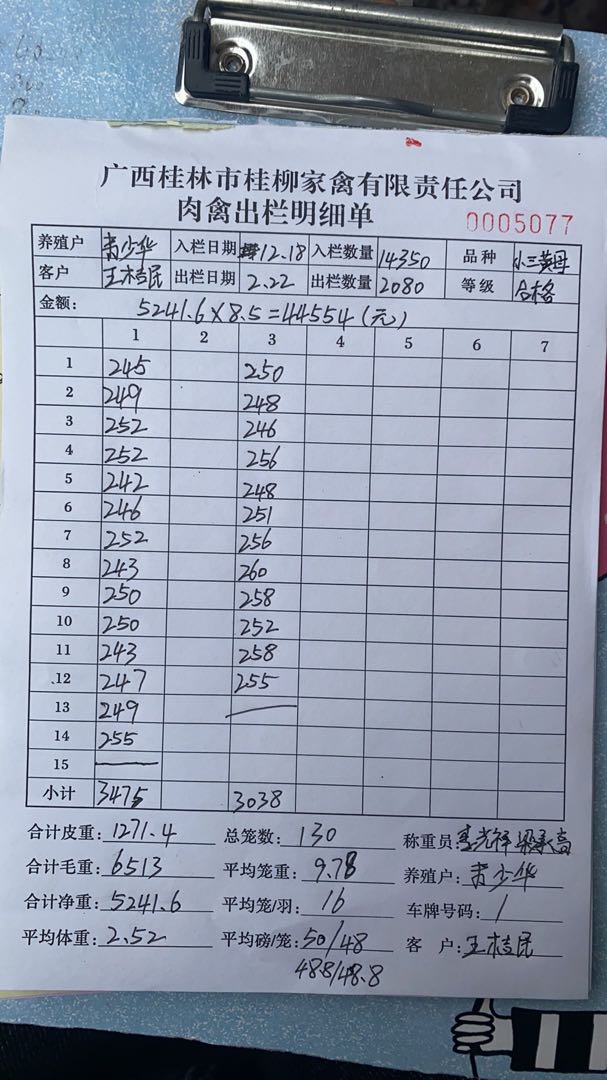 广西桂林市桂柳家禽有限责任公司
肉禽出栏明细单 0005077
养殖户 黄少华 入栏日期 12.18 入栏数量 14350 品种 小三黄母
客户 王桂民 出栏日期 2.22 出栏数量 2080 等级 合格
金额: 5241.6×8.5=44554(元)
1 2 3 4 5 6 7
1 245 250
2 249 248
3 252 246
4 252 256
5 242 248
6 246 251
7 252 256
8 243 260
9 250 258
10 250 252
11 243 258
.12 247 255
13 249
14 255
15
小计 3475 3038
合计皮重: 1271.4 总笼数: 130 称重员:
合计毛重: 6513 平均笼重: 9.78 养殖户: 黄少华
合计净重: 5241.6 平均笼/羽: 16 车牌号码: /
平均体重: 2.52 平均磅/笼: 50/48 客 户: 王桂民
488/48.8